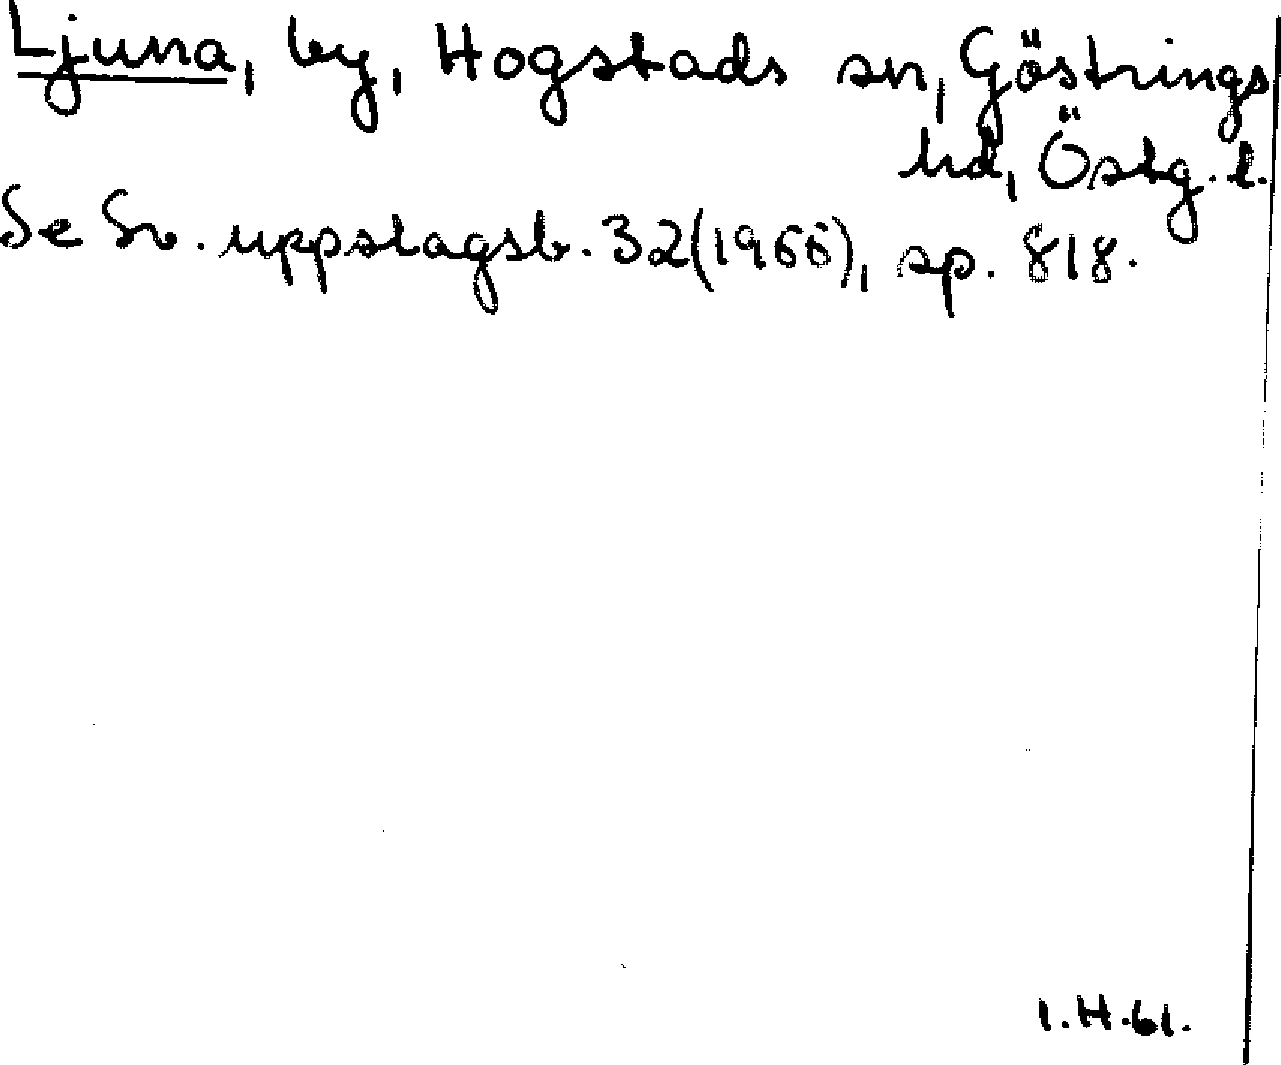 Ljuna, by, Hogstads sn, Göstrings
hd, Östg. l.
Se Sv. uppslagsb. 32(1966), sp. 818.
I.H.61.